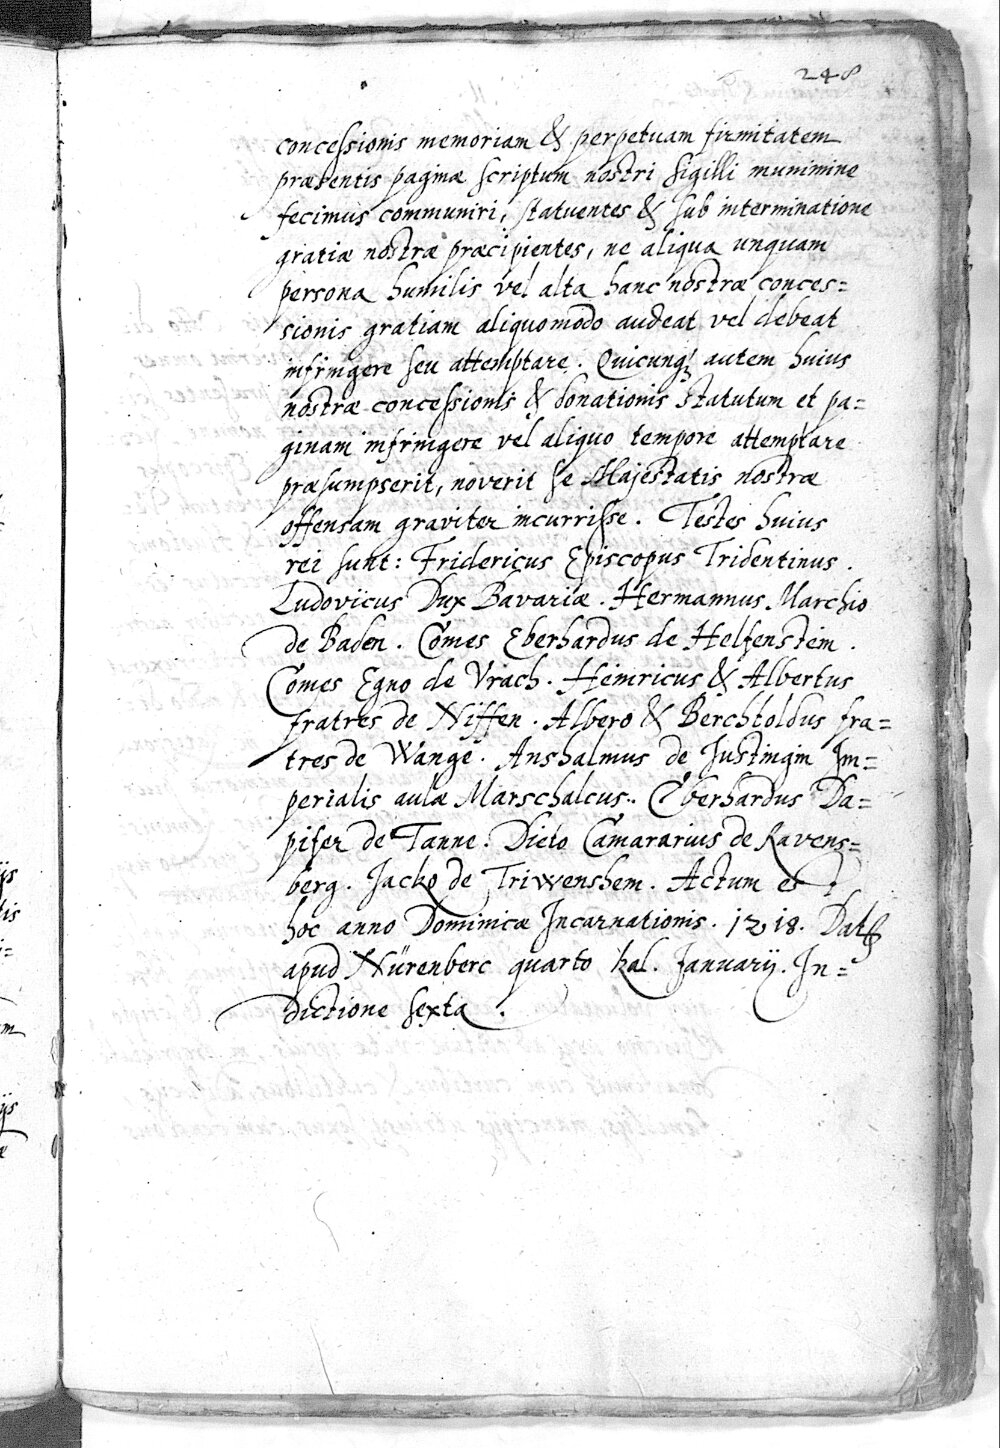 248
concessionis memoriam & perpetuam firmitatem
præsentis paginæ scriptum nostri sigilli munimine
fecimus communiri, statuentes & sub interminatione
gratiæ nostræ præcipientes, ne aliqua unquam
persona humilis vel alta hanc nostræ conces=
sionis gratiam aliquomodo audeat vel debeat
infringere seu attemptare. Quicunq; autem huius
nostræ concessionis & donationis statutum et pa=
ginam infringere vel aliquo tempore attemptare
præsumpserit, noverit se Majestatis nostræ
offensam graviter incurrisse. Testes huius
rei sunt: Fridericus Episcopus Tridentinus.
Ludovicus Dux Bavariæ. Hermannus Marchio
de Baden. Comes Eberhardus de Helfenstein.
Comes Egno de Vrach. Heinricus & Albertus
fratres de Niffen. Albero & Berchtoldus fra=
tres de Wange. Anshalmus de Justingin Im=
perialis aulæ Marschalcus. Eberhardus Da=
pifer de Tanne. Dieto Camararius de Ravens=
berg. Jacko de Triwenshem. Actum est
hoc anno Dominicæ Incarnationis. 1218. Dat
apud Nürenberc quarto kal. Januarij. In=
dictione sexta.